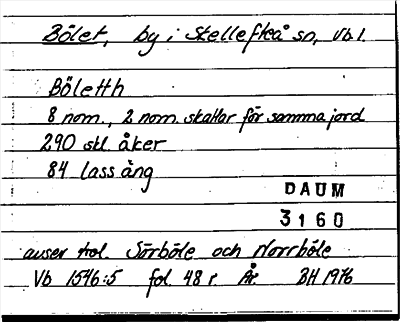 Bölet, by i Skellefteå sn, Vb l.
Böletth
8 nom., 2 nom. skattar för samma jord
290 skl. åker
84 lass äng
DAUM
3160
avser trol. Sörböle och Norrböle
Vb 1546:5 fol. 48 r. Är. BH 1976